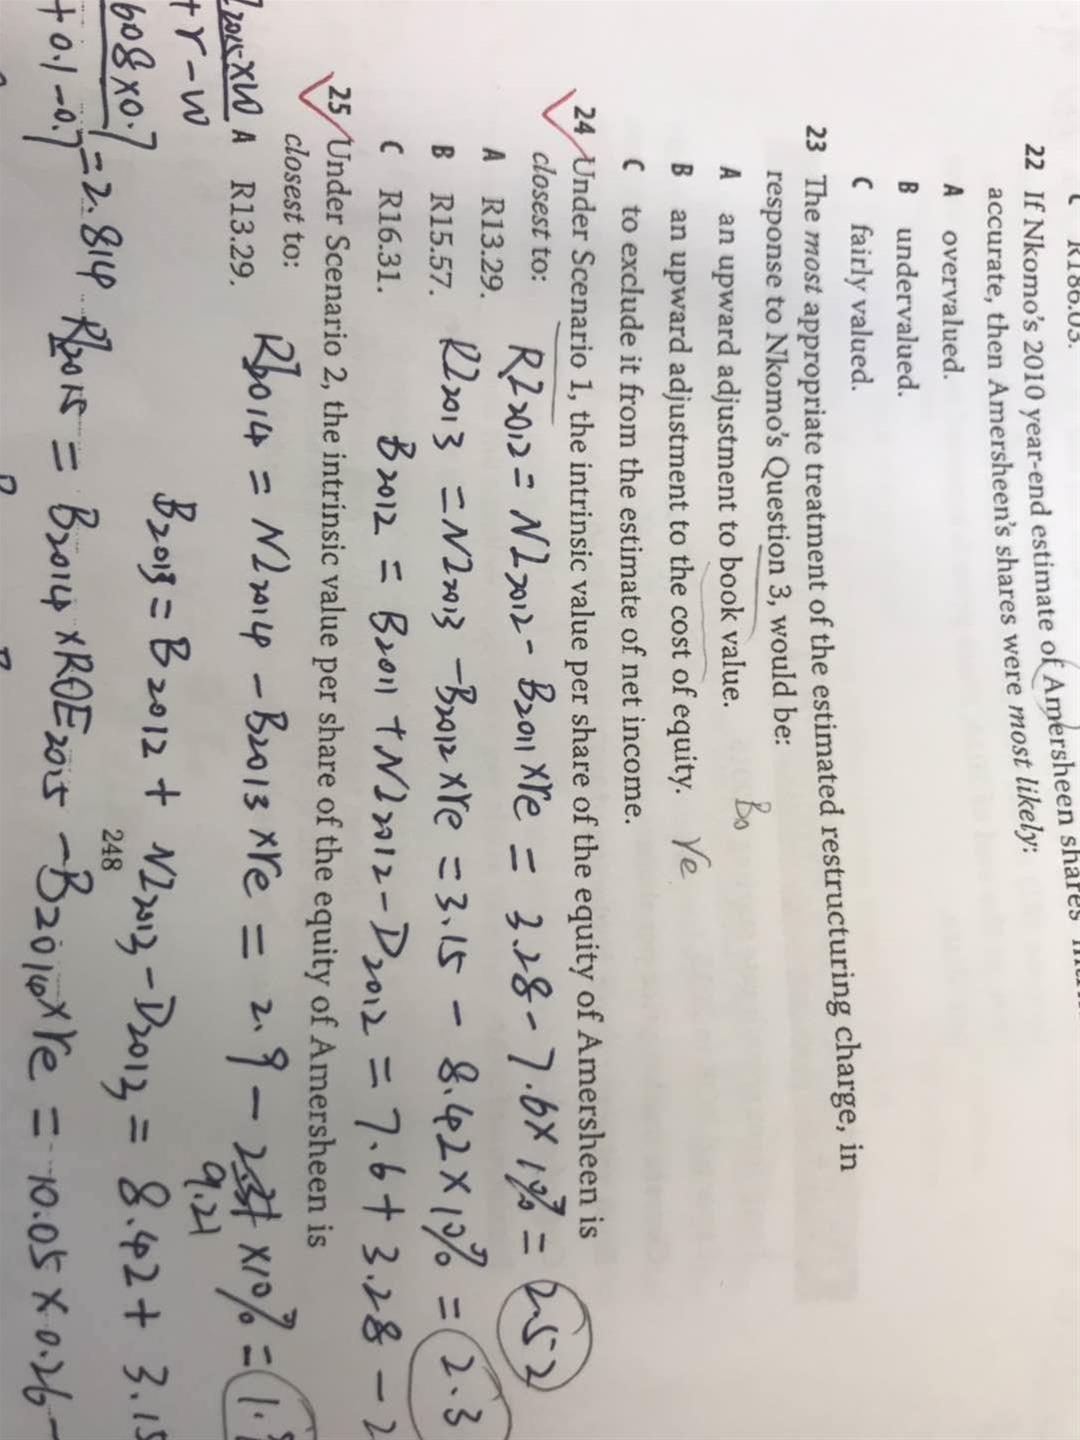 C R186.03.
22 If Nkomo's 2010 year-end estimate of Amersheen shares
accurate, then Amersheen's shares were most likely:
A overvalued.
B undervalued.
C fairly valued.
23 The most appropriate treatment of the estimated restructuring charge, in
response to Nkomo's Question 3, would be:
A an upward adjustment to book value. B0
B an upward adjustment to the cost of equity. re
C to exclude it from the estimate of net income.
24 Under Scenario 1, the intrinsic value per share of the equity of Amersheen is
closest to:
A R13.29. RI2012 = NI2012 - B2011 × re = 3.28 - 7.6 × 10% = 2.52
B R15.57. RI2013 = NI2013 - B2012 × re = 3.15 - 8.42 × 10% = 2.3
C R16.31. B2012 = B2011 + NI2012 - D2012 = 7.6 + 3.28 - 2
25 Under Scenario 2, the intrinsic value per share of the equity of Amersheen is
closest to:
A R13.29. RI2014 = NI2014 - B2013 × re = 2.9 - 9.21 × 10% = 1.
B2013 = B2012 + NI2013 - D2013 = 8.42 + 3.15
248
2015 × W
+ r - w
608 × 0.7
+ 0.1 - 0.7 = 2.814 RI2015 = B2014 × ROE2015 - B2014 × re = 10.05 × 0.26 -